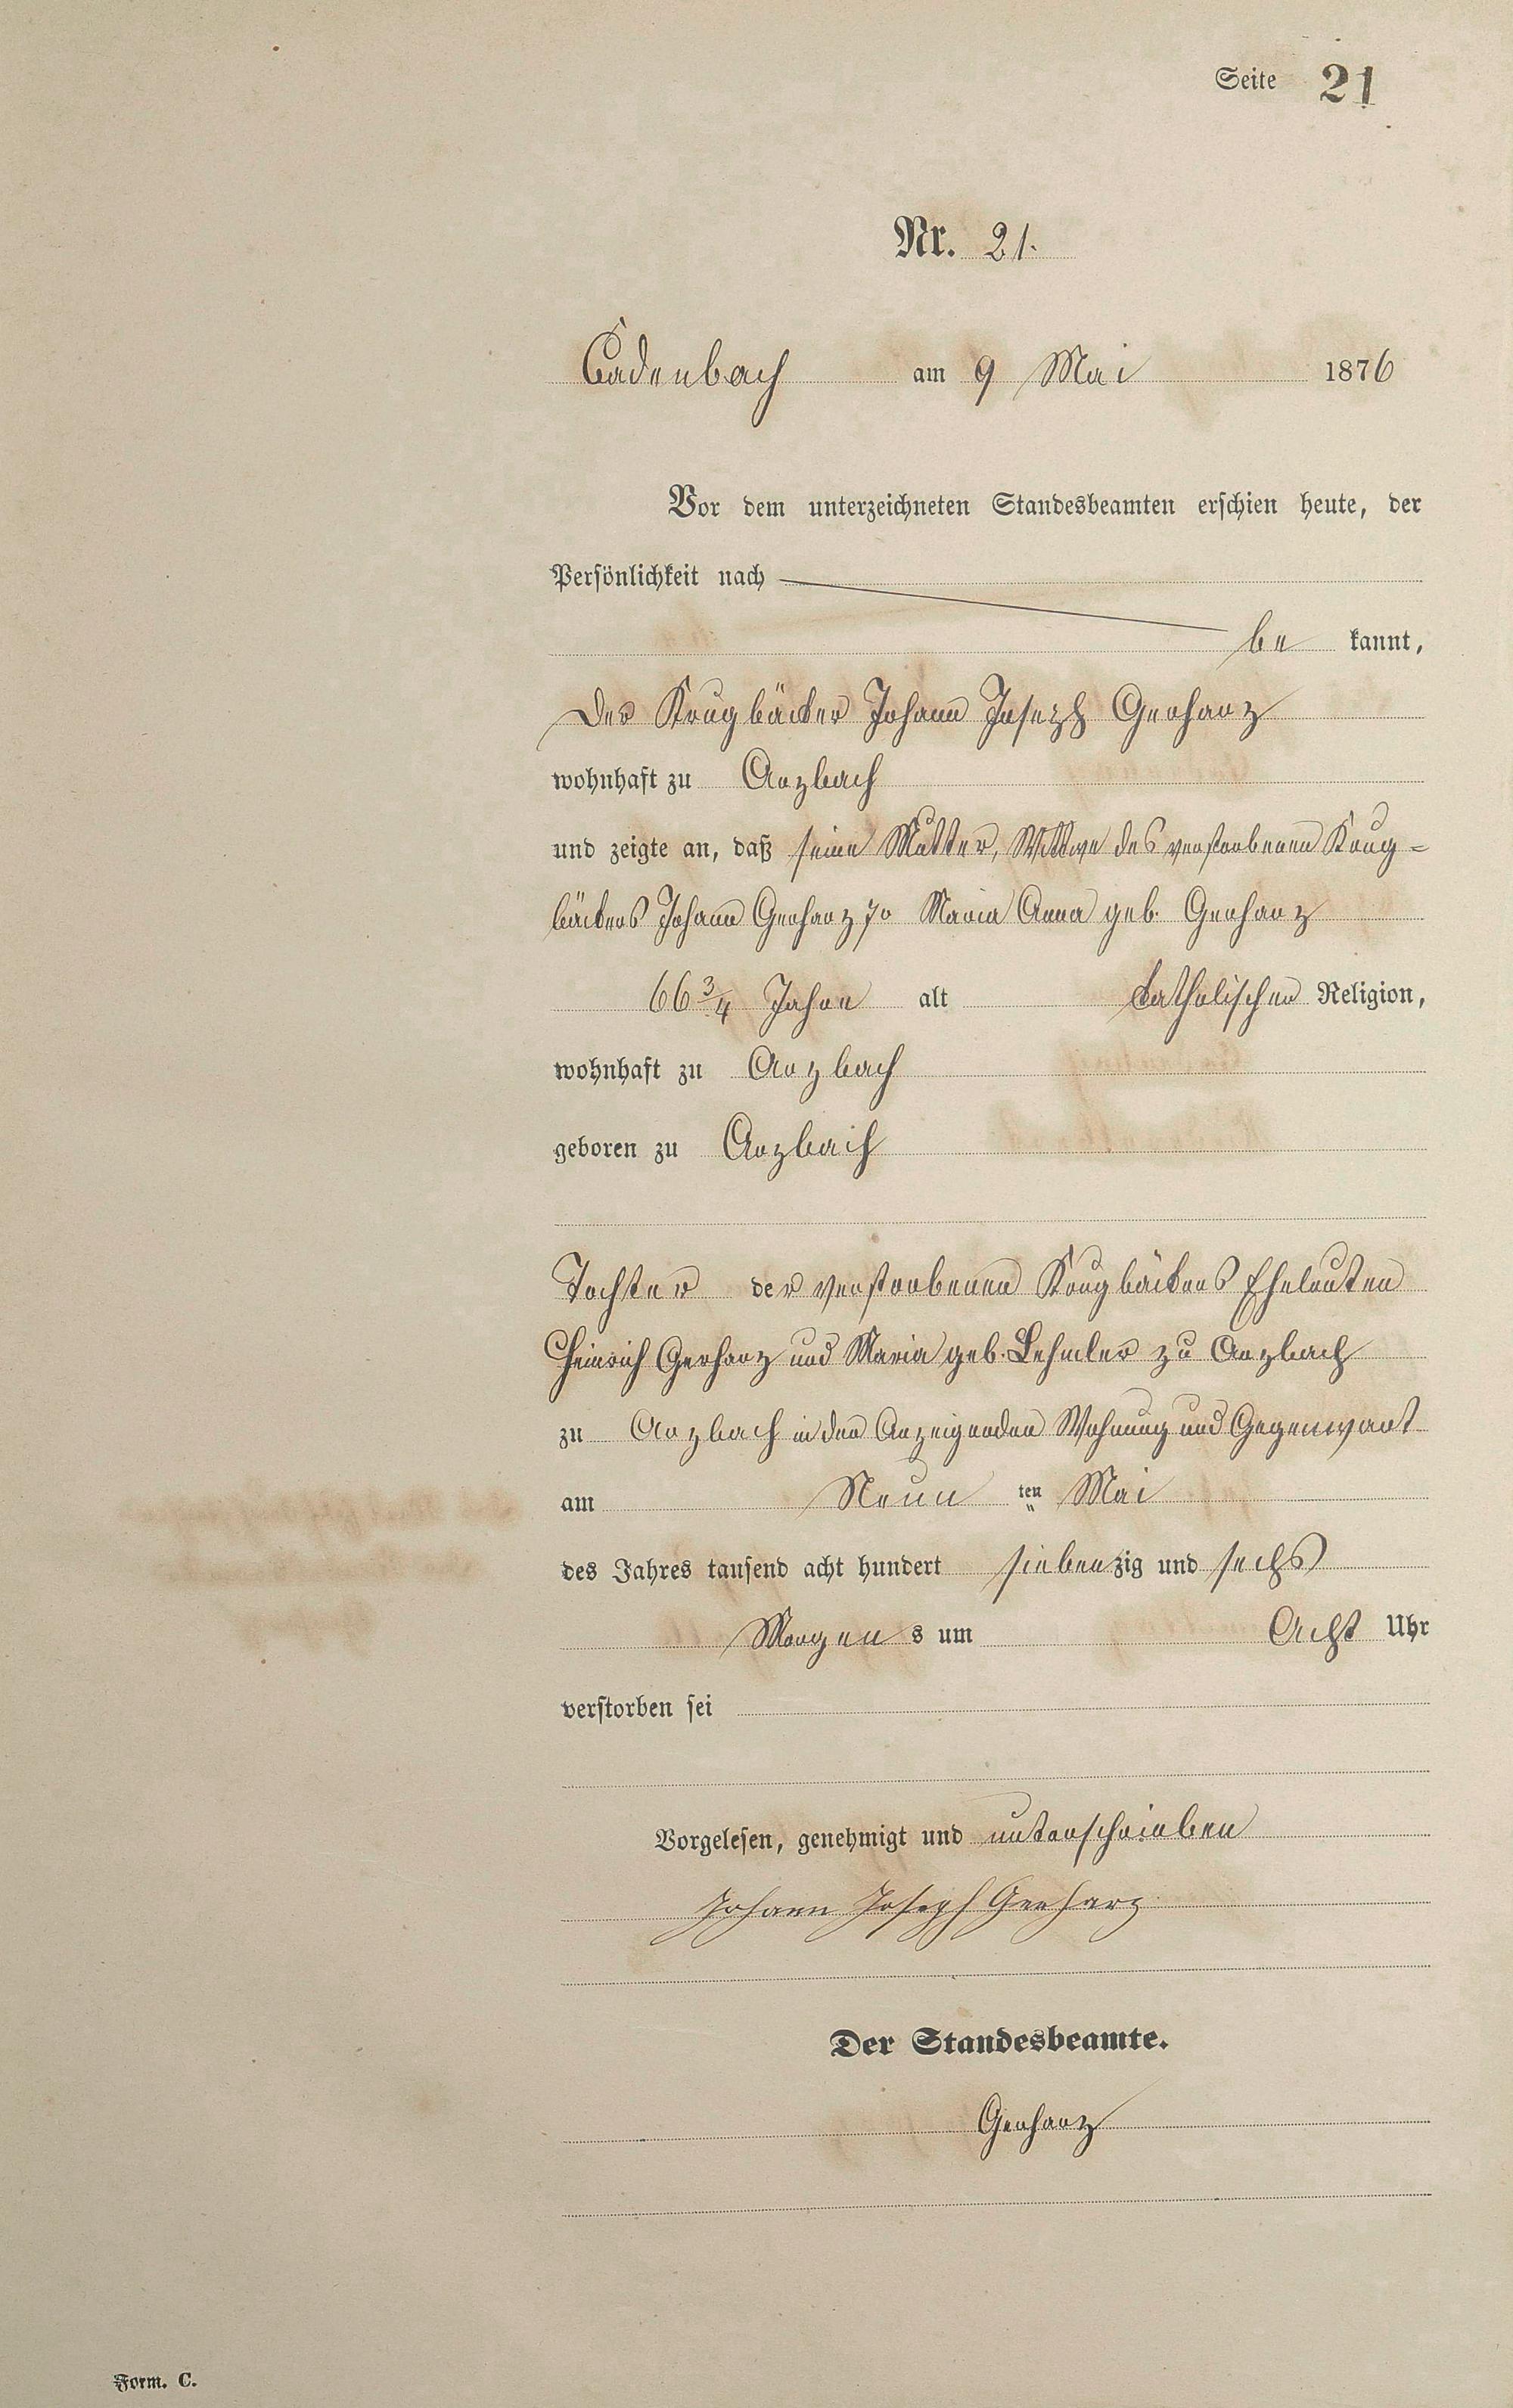 Seite 21
Nr. 21.
Cadenbach am 9 Mai 1876
Vor dem unterzeichneten Standesbeamten erschien heute, der
Persönlichkeit nach
be kannt,
der Krugbäcker Johann Joseph Gerharz
wohnhaft zu Arzbach
und zeigte an, daß seine Mutter, Wittwe des verstorbenen Krug-
bäckers Johann Gerharz Maria Anna geb. Gerharz
66 3/4 Jahre alt katholischer Religion,
wohnhaft zu Arzbach
geboren zu Arzbach
Tochter der verstorbenen Krugbäckers Eheleuten
Heinrich Gerharz und Maria geb. Lehmler zu Arzbach
zu Arzbach in der Anzeigenden Wohnung und Gegenwart
am Neun ten Mai
des Jahres tausend acht hundert siebenzig und sechs
Morgen s um Acht Uhr
verstorben sei
Vorgelesen, genehmigt und unterschrieben
Johann Joseph Gerharz
Der Standesbeamte.
Gerharz
Form. C.